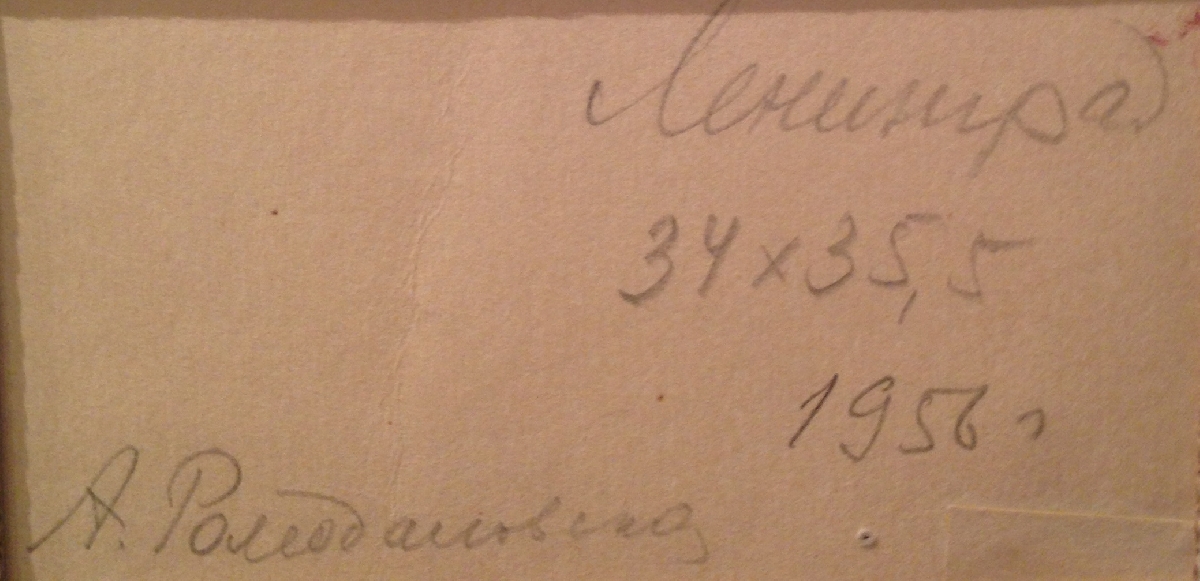 Ленинград
34х35,5
1956 г
А. Ромодановская